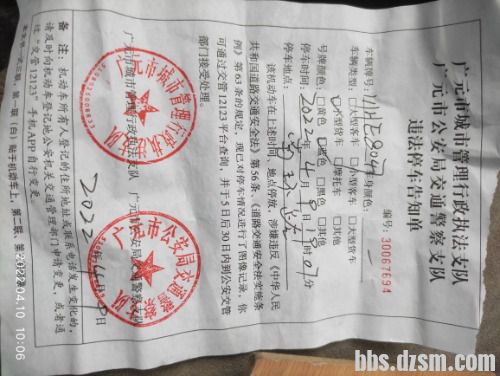 广元市城市管理行政执法支队
广元市公安局交通警察支队
违法停车告知单
编号：30067694
车辆牌号： 车身颜色：
车辆类型：□大型客车 □小型客车 □大型货车
□小型货车 □摩托车 □其他
号牌颜色：□黄色 □蓝色 □黑色 □其他
停车时间：2022年4月9日 时 分
停车地点：
该机动车在上述时间、地点停放，涉嫌违反《中华人民
共和国道路交通安全法》第56条、《道路交通安全法实施条
例》第63条的规定，现已对停车情况进行了图像记录，你
可通过交管12123平台查询，并于5日后30日内到公安交管
部门接受处理。
广元市城市管理行政执法支队 广元市公安局交通警察支队
2022年4月 日
备注：机动车所有人登记的住所地址或联系电话发生变化的，
请及时向机动车登记地公安机关交通管理部门申请变更，或者通
过“交管12123”手机APP自行变更。
2022.04.10
10:06
bbs.dzsm.com